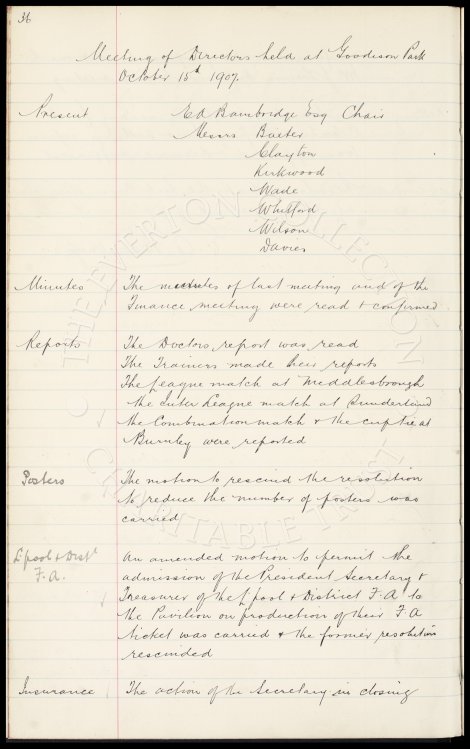 36
Meeting of Directors held at Goodison Park
October 15th 1907.
Present E A Bainbridge Esq Chair
Messrs Baxter
Clayton
Kirkwood
Wade
Whitford
Wilson
Davies
Minutes The minutes of last meeting and of the
Finance meeting were read & confirmed
Reports The Doctors report was read
The Trainers made their reports
The League match at Middlesborough
the Inter League match at Sunderland
the Combination match & the cup tie at
Burnley were reported
Posters The motion to rescind the resolution
to reduce the number of posters was
carried
L'pool & Distt An amended motion to permit the
F.A. admission of the President Secretary &
Treasurer of the L'pool & District F.A. to
the Pavilion on production of their F A
ticket was carried & the former resolution
rescinded
Insurance The action of the Secretary in closing
THE EVERTON COLLECTION
CHARITABLE TRUST